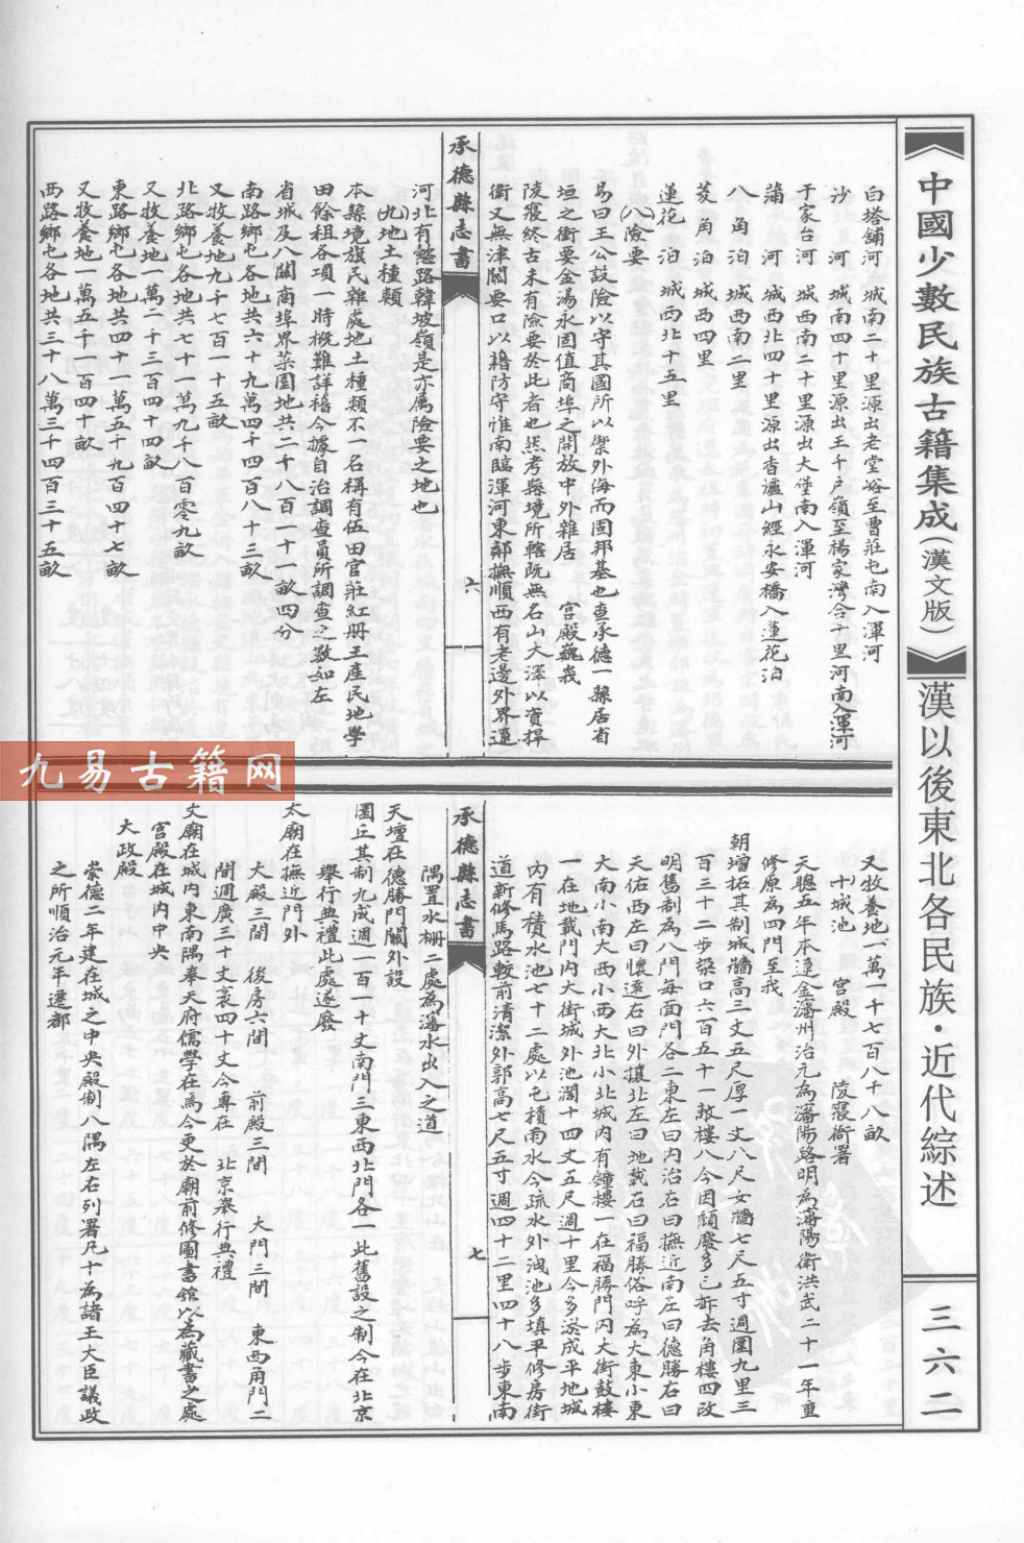 中國少數民族古籍集成(漢文版)
漢以後東北各民族·近代綜述
三六二
白塔鋪河 城南二十里源出老堂峪至曹莊屯南入渾河
沙河 城南四十里源出王千户嶺至楊家灣合十里河南入渾河
于家台河 城西南二十里源出大堡南入渾河
蒲河 城西北四十里源出香爐山經永安橋入蓮花泊
八角泊 城西南二里
芰角泊 城西四里
蓮花泊 城西北十五里
(八)險要
易曰王公設險以守其國所以禦外侮而固邦基也查承德一縣居省
垣之衝要金湯永固值商埠之開放中外雜居 宮殿巍峩
陵寢終古未有險要於此者也然考縣境所轄既無名山大澤以資捍
衛又無津關要口以藉防守惟南臨渾河東鄰撫順西有老邊外界遼
承德縣志書
六
河北有懿路韓坡嶺是亦屬險要之地也
(九)地土種類
本縣境旗民雜處地土種類不一名稱有伍田官莊紅册王產民地學
田餘租各項一時概難詳稽今據自治調查員所調查之数如左
省城及八關商埠界菜園地共二千八百一十一畝四分
南路鄉屯各地共六十九萬四千四百八十三畝
又牧養地九千七百一十五畝
北路鄉屯各地共七十一萬九千八百零九畝
又牧養地一萬二千三百四十四畝
東路鄉屯各地共四十一萬五千九百四十七畝
又牧養地一萬五千一百四十畝
西路鄉屯各地共三十八萬三千四百三十五畝
九易古籍网
又牧養地一萬一千七百八十八畝
(十)城池 宮殿 陵寢衙署
天聰五年本遼金瀋州治元為瀋陽路明為瀋陽衛洪武二十一年重
修原為四門至我
朝增拓其制城牆高三丈五尺厚一丈八尺女牆七尺五寸週圍九里三
百三十二步垜口六百五十一敵樓八今因頹廢多已拆去角樓四改
明舊制為八門每面門各二東左曰內治右曰撫近南左曰德勝右曰
天佑西左曰懷遠右曰外攘北左曰地載右曰福勝俗呼為大東小東
大南小南大西小西大北小北城內有鐘樓一在福勝門內大街鼓樓
一在地載門內大街城外池濶十四丈五尺週十里今多淤成平地城
內有積水池七十二處以屯積雨水今疏水外洩池多填平修房街
道新修馬路較前清潔外郭高七尺五寸週四十二里四十八步東南
承德縣志書
七
隅置水柵二處為瀋水出入之道
天壇在德勝門關外設
圜丘其制九成週一百一十丈南門三東西北門各一此舊設之制今在北京
舉行典禮此處遂廢
太廟在撫近門外
大殿三間 後房六間 前殿三間 大門三間 東西角門二
間週廣三十丈袤四十丈今專在 北京舉行典禮
文廟在城內東南隅奉天府儒學在焉今更於廟前修圖書館以為藏書之處
宮殿在城內中央
大政殿
崇德二年建在城之中央殿制八隅左右列署凡十為諸王大臣議政
之所順治元年遷都